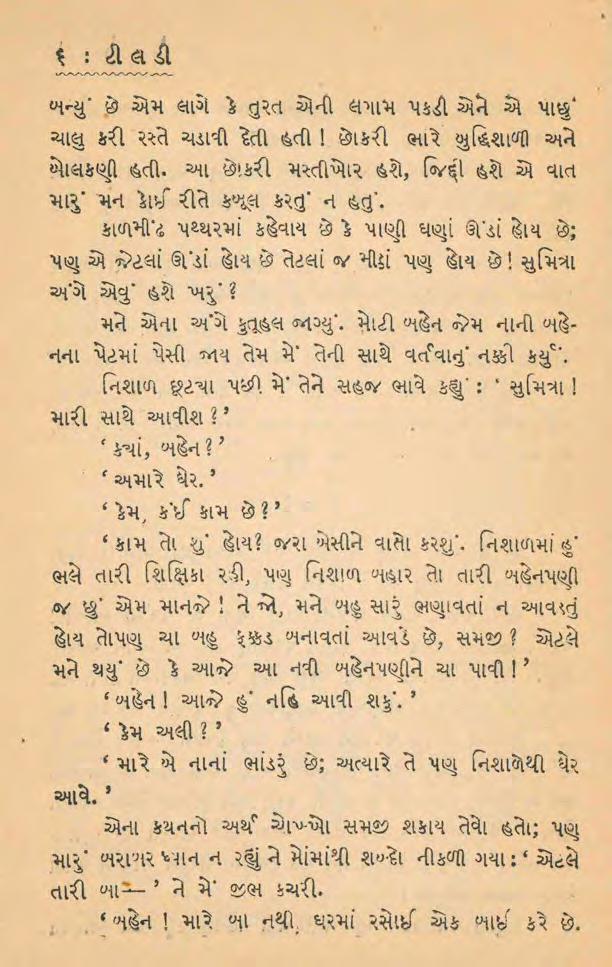 ૬ : ટીલડી
બન્યું છે એમ લાગે કે તુરત એની લગામ પકડી એને એ પાછું
ચાલુ કરી રસ્તે ચડાવી દેતી હતી! છોકરી ભારે બુદ્ધિશાળી અને
બોલકણી હતી. આ છોકરી મસ્તીખોર હશે, જિદ્દી હશે એ વાત
મારું મન કોઈ રીતે કબૂલ કરતું ન હતું.
કાળમીંઢ પથ્થરમાં કહેવાય છે કે પાણી ઘણાં ઊંડાં હોય છે;
પણ એ જેટલાં ઊંડાં હોય છે તેટલાં જ મીઠાં પણ હોય છે! સુમિત્રા
અંગે એવું હશે ખરું?
મને એના અંગે કુતૂહલ જાગ્યું. મોટી બહેન જેમ નાની બહે-
નના પેટમાં પેસી જાય તેમ મેં તેની સાથે વર્તવાનું નક્કી કર્યું.
નિશાળ છૂટયા પછી મેં તેને સહજ ભાવે કહ્યું : ‘ સુમિત્રા!
મારી સાથે આવીશ?’
‘ ક્યાં, બહેન?’
‘ અમારે ઘેર.’
‘ કેમ, કંઈ કામ છે?’
‘ કામ તો શું હોય? જરા બેસીને વાતો કરશું. નિશાળમાં હું
ભલે તારી શિક્ષિકા રહી, પણ નિશાળ બહાર તો તારી બહેનપણી
જ છું એમ માનજે! ને જો, મને બહુ સારું ભણાવતાં ન આવડતું
હોય તોપણ ચા બહુ ફક્કડ બનાવતાં આવડે છે, સમજી? એટલે
મને થયું છે કે આજે આ નવી બહેનપણીને ચા પાવી!’
‘ બહેન! આજે હું નહિ આવી શકું.’
‘ કેમ અલી?’
‘ મારે બે નાનાં ભાંડરું છે; અત્યારે તે પણ નિશાળેથી ઘેર
આવે.’
એના કથનનો અર્થ ચોખ્ખો સમજી શકાય તેવો હતો; પણ
મારું બરાબર ધ્યાન ન રહ્યું ને મોંમાંથી શબ્દો નીકળી ગયા : ‘ એટલે
તારી બા— ’ ને મેં જીભ કચરી.
‘ બહેન! મારે બા નથી, ઘરમાં રસોઈ એક બાઈ કરે છે.